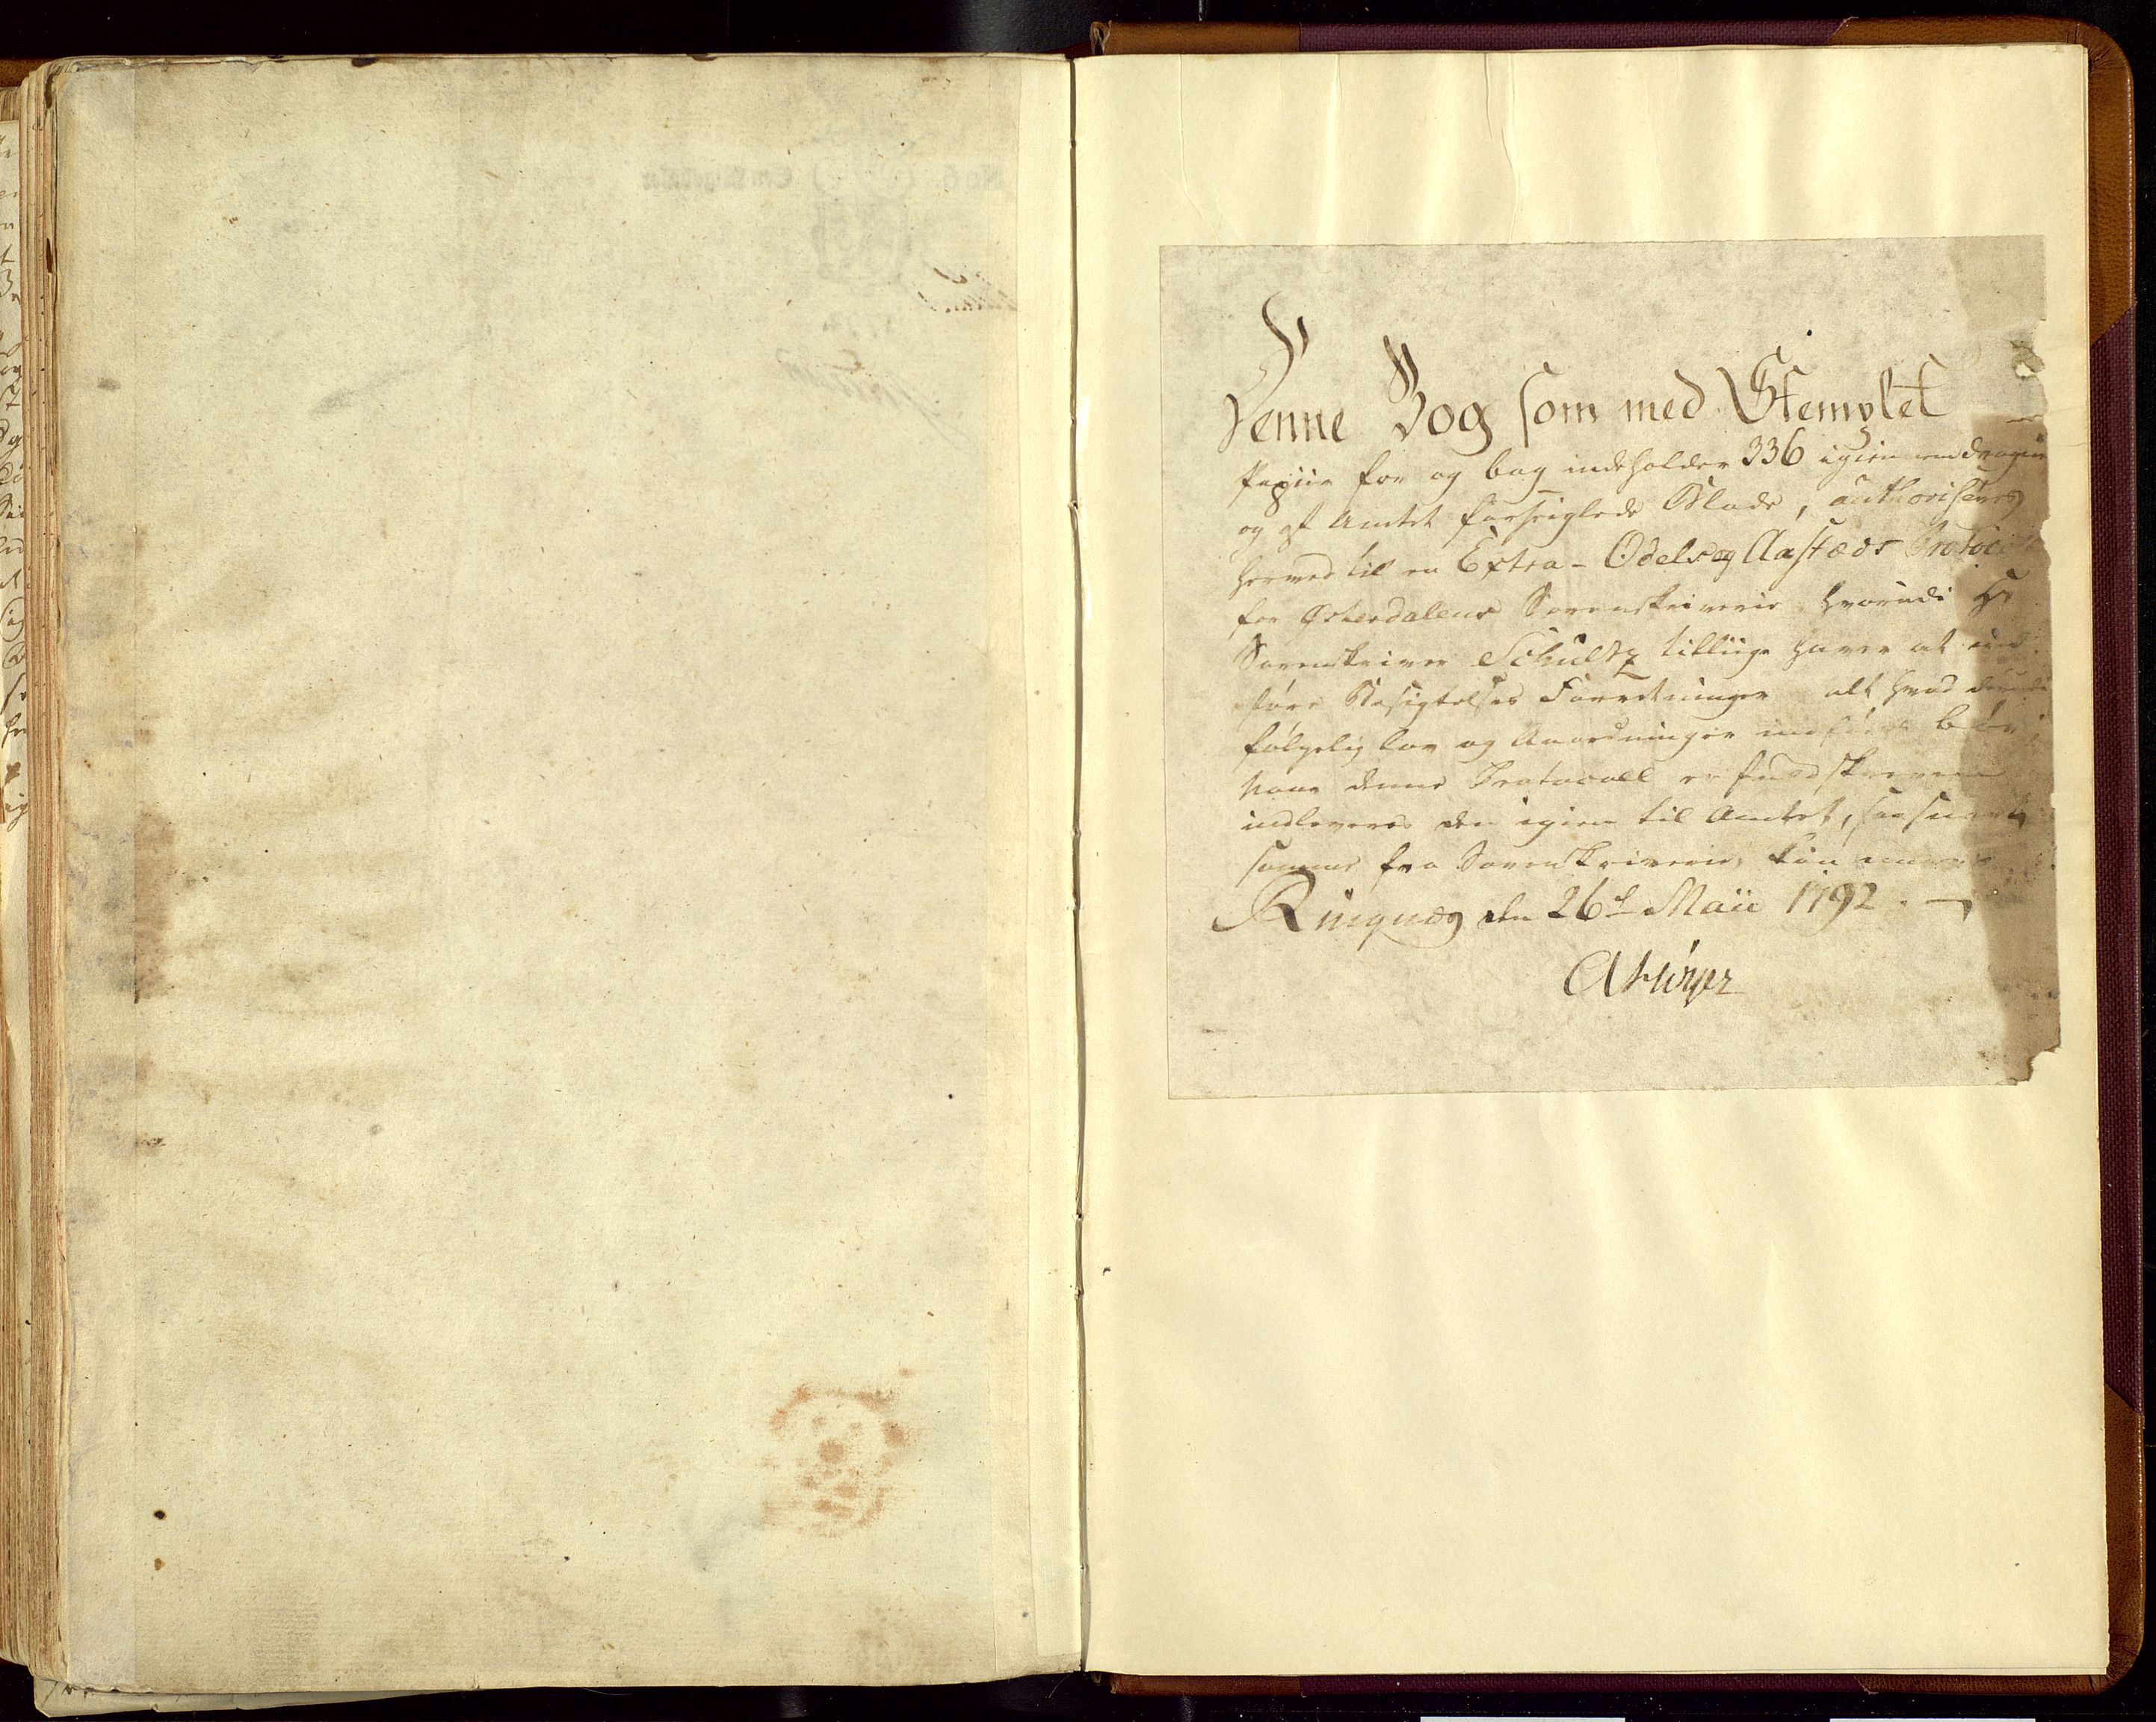 Denne Bog som med Stemplet
Papiir for og bag indeholder 336 igiennemdragne
og af Amtet forseiglede Blade, authoriseres
herved til en Extra- Odels og Aasteds Protocoll
for Østerdalens Sorenskriverie, hvorudi Hr
Sorenskriver Schultz tilliige haver at ind
føre Besigtelses Forretninger alt hvad derudi
følgelig Lov og Anordninger indføres bør;
Naar denne Protocoll er fuldskreven
indleveres den igien til Amtet, saasnart
samme fra Sorenskriveriet kan
Ringnæs den 26d Maii 1792.